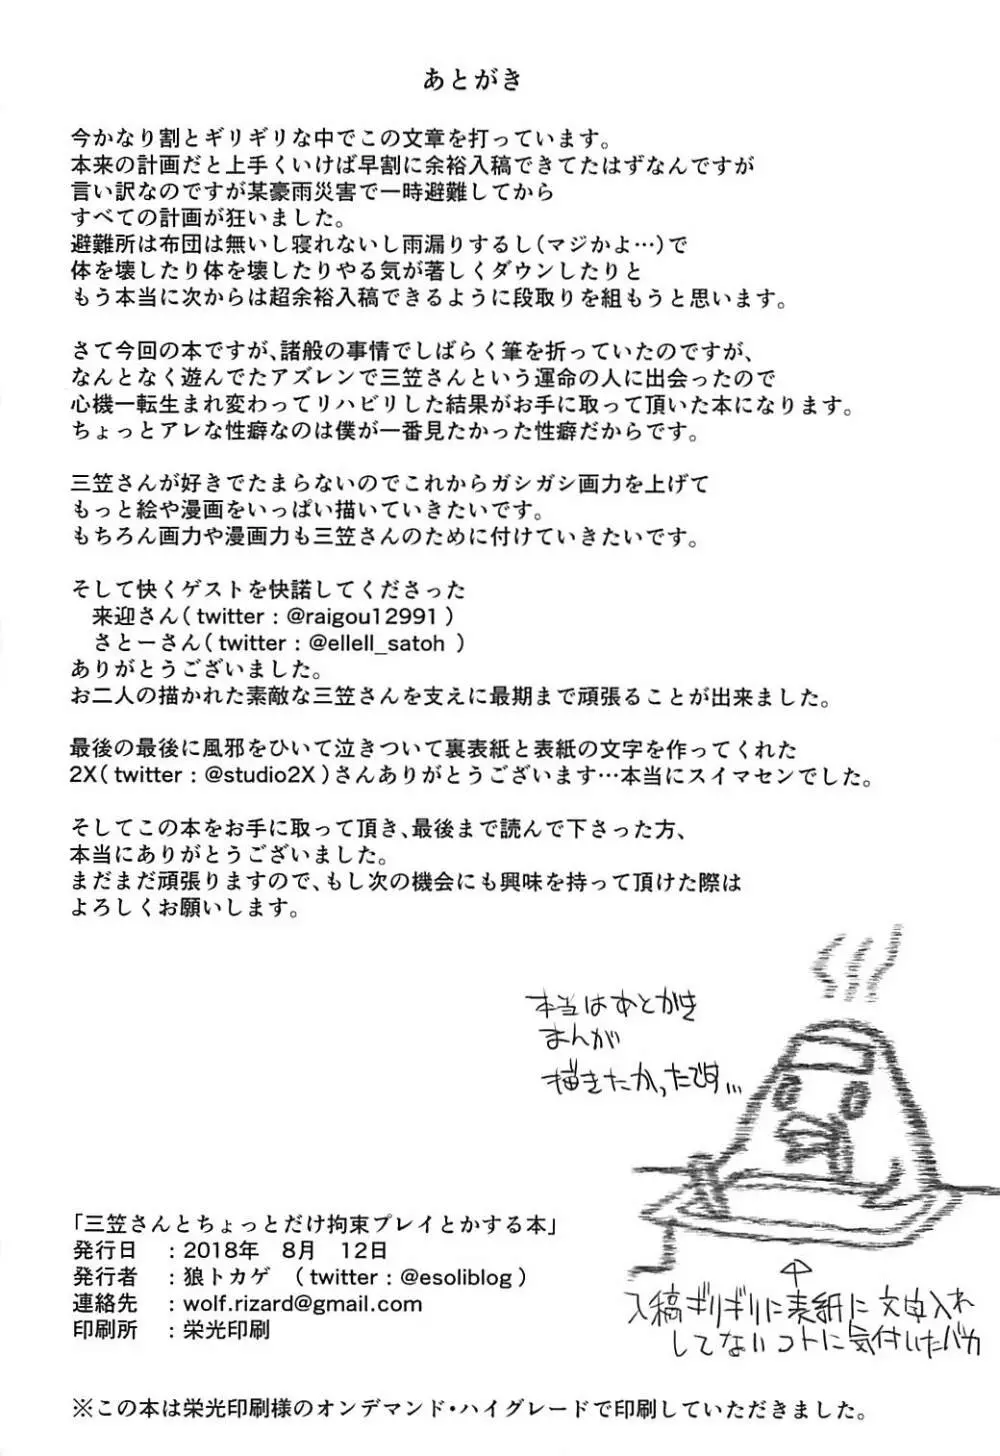 あとがき
今かなり割とギリギリな中でこの文章を打っています。
本来の計画だと上手くいけば早割に余裕入稿できてたはずなんですが
言い訳なのですが某豪雨災害で一時避難してから
すべての計画が狂いました。
避難所は布団は無いし寝れないし雨漏りするし(マジかよ…)で
体を壊したり体を壊したりやる気が著しくダウンしたりと
もう本当に次からは超余裕入稿できるように段取りを組もうと思います。
さて今回の本ですが、諸般の事情でしばらく筆を折っていたのですが、
なんとなく遊んでたアズレンで三笠さんという運命の人に出会ったので
心機一転生まれ変わってリハビリした結果がお手に取って頂いた本になります。
ちょっとアレな性癖なのは僕が一番見たかった性癖だからです。
三笠さんが好きでたまらないのでこれからガシガシ画力を上げて
もっと絵や漫画をいっぱい描いていきたいです。
もちろん画力や漫画力も三笠さんのために付けていきたいです。
そして快くゲストを快諾してくださった
来迎さん(twitter:@raigou12991)
さとーさん(twitter:@ellell_satoh )
ありがとうございました。
お二人の描かれた素敵な三笠さんを支えに最期まで頑張ることが出来ました。
最後の最後に風邪をひいて泣きついて裏表紙と表紙の文字を作ってくれた
2X(twitter:@studio2X)さんありがとうございます…本当にスイマセンでした。
そしてこの本をお手に取って頂き、最後まで読んで下さった方、
本当にありがとうございました。
まだまだ頑張りますので、もし次の機会にも興味を持って頂けた際は
よろしくお願いします。
本当はあとがき
まんが
描きたかったです...
「三笠さんとちょっとだけ拘束プレイとかする本」
発行日 :2018年 8月 12日
発行者 :狼トカゲ (twitter:@esoliblog)
連絡先 :wolf.rizard@gmail.com
印刷所 :栄光印刷
入稿ギリギリに表紙に文字入れ
してないコトに気付いたバカ
※この本は栄光印刷様のオンデマンド・ハイグレードで印刷していただきました。